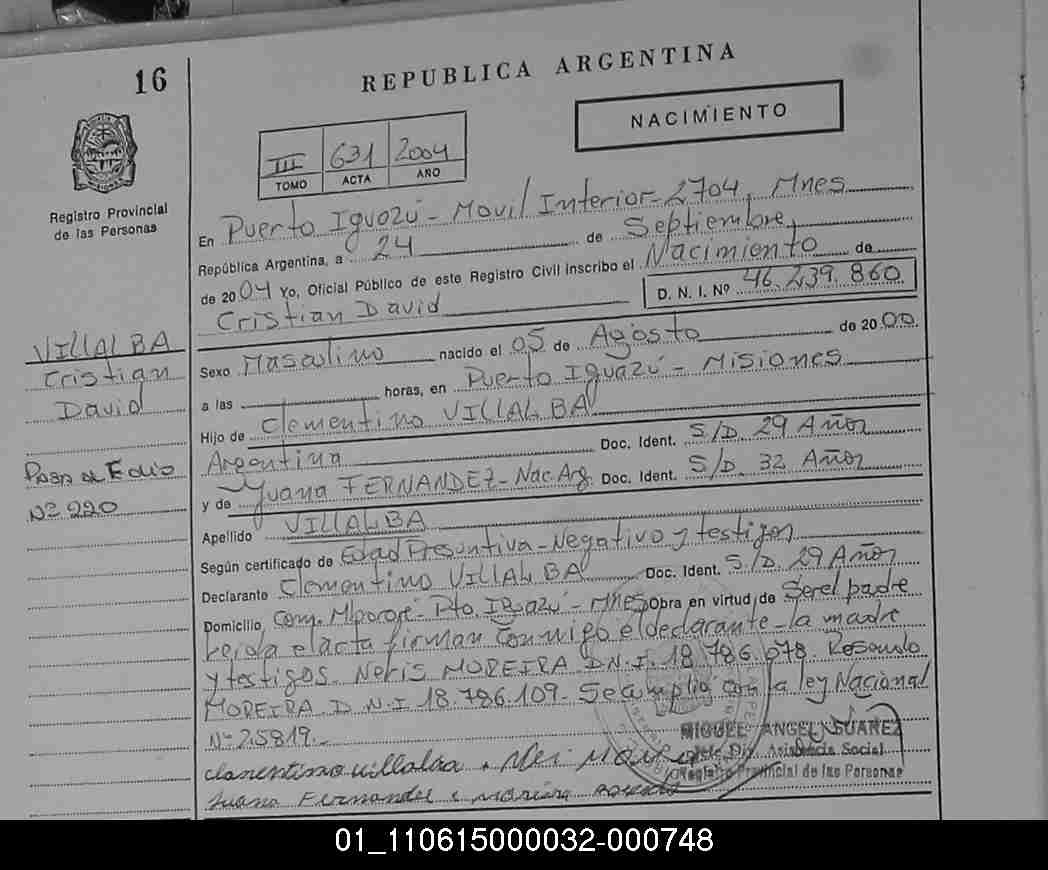 16
REPUBLICA ARGENTINA
NACIMIENTO
III 631 2004
TOMO ACTA AÑO
Registro Provincial
de las Personas
En Puerto Iguazú - Movil Interior - 2704, Mnes
República Argentina, a 24 de Septiembre,
de 2004 Yo, Oficial Público de este Registro Civil inscribo el Nacimiento de
Cristian David D. N. I. Nº 46.239.860
VILLALBA
Cristian
David
Pasa al Folio
Nº 220
Sexo Masculino nacido el 05 de Agosto de 2000
a las horas, en Puerto Iguazú - Misiones
Hijo de Clementino VILLALBA
Argentina Doc. Ident. S/D. 29 Años
y de Juana FERNANDEZ - Nac. Arg. Doc. Ident. S/D. 32 Años
Apellido VILLALBA
Según certificado de Edad Presuntiva - Negativo y testigos
Declarante Clementino VILLALBA Doc. Ident. S/D. 29 Años
Domicilio Com. Mbororé - Pto. Iguazú - Mnes Obra en virtud de Ser el padre
Leida el acta firman conmigo el declarante - la madre
y testigos. Neris MOREIRA D.N.I. 18.786.078. Rosendo
MOREIRA D.N.I 18.786.109 - Se cumplió con la ley Nacional
Nº 25819.-
MIGUEL ANGEL SUAREZ
Jefe Div. Asistencia Social
Registro Provincial de las Personas
clementino villalba
Juana Fernandez
01_110615000032-000748